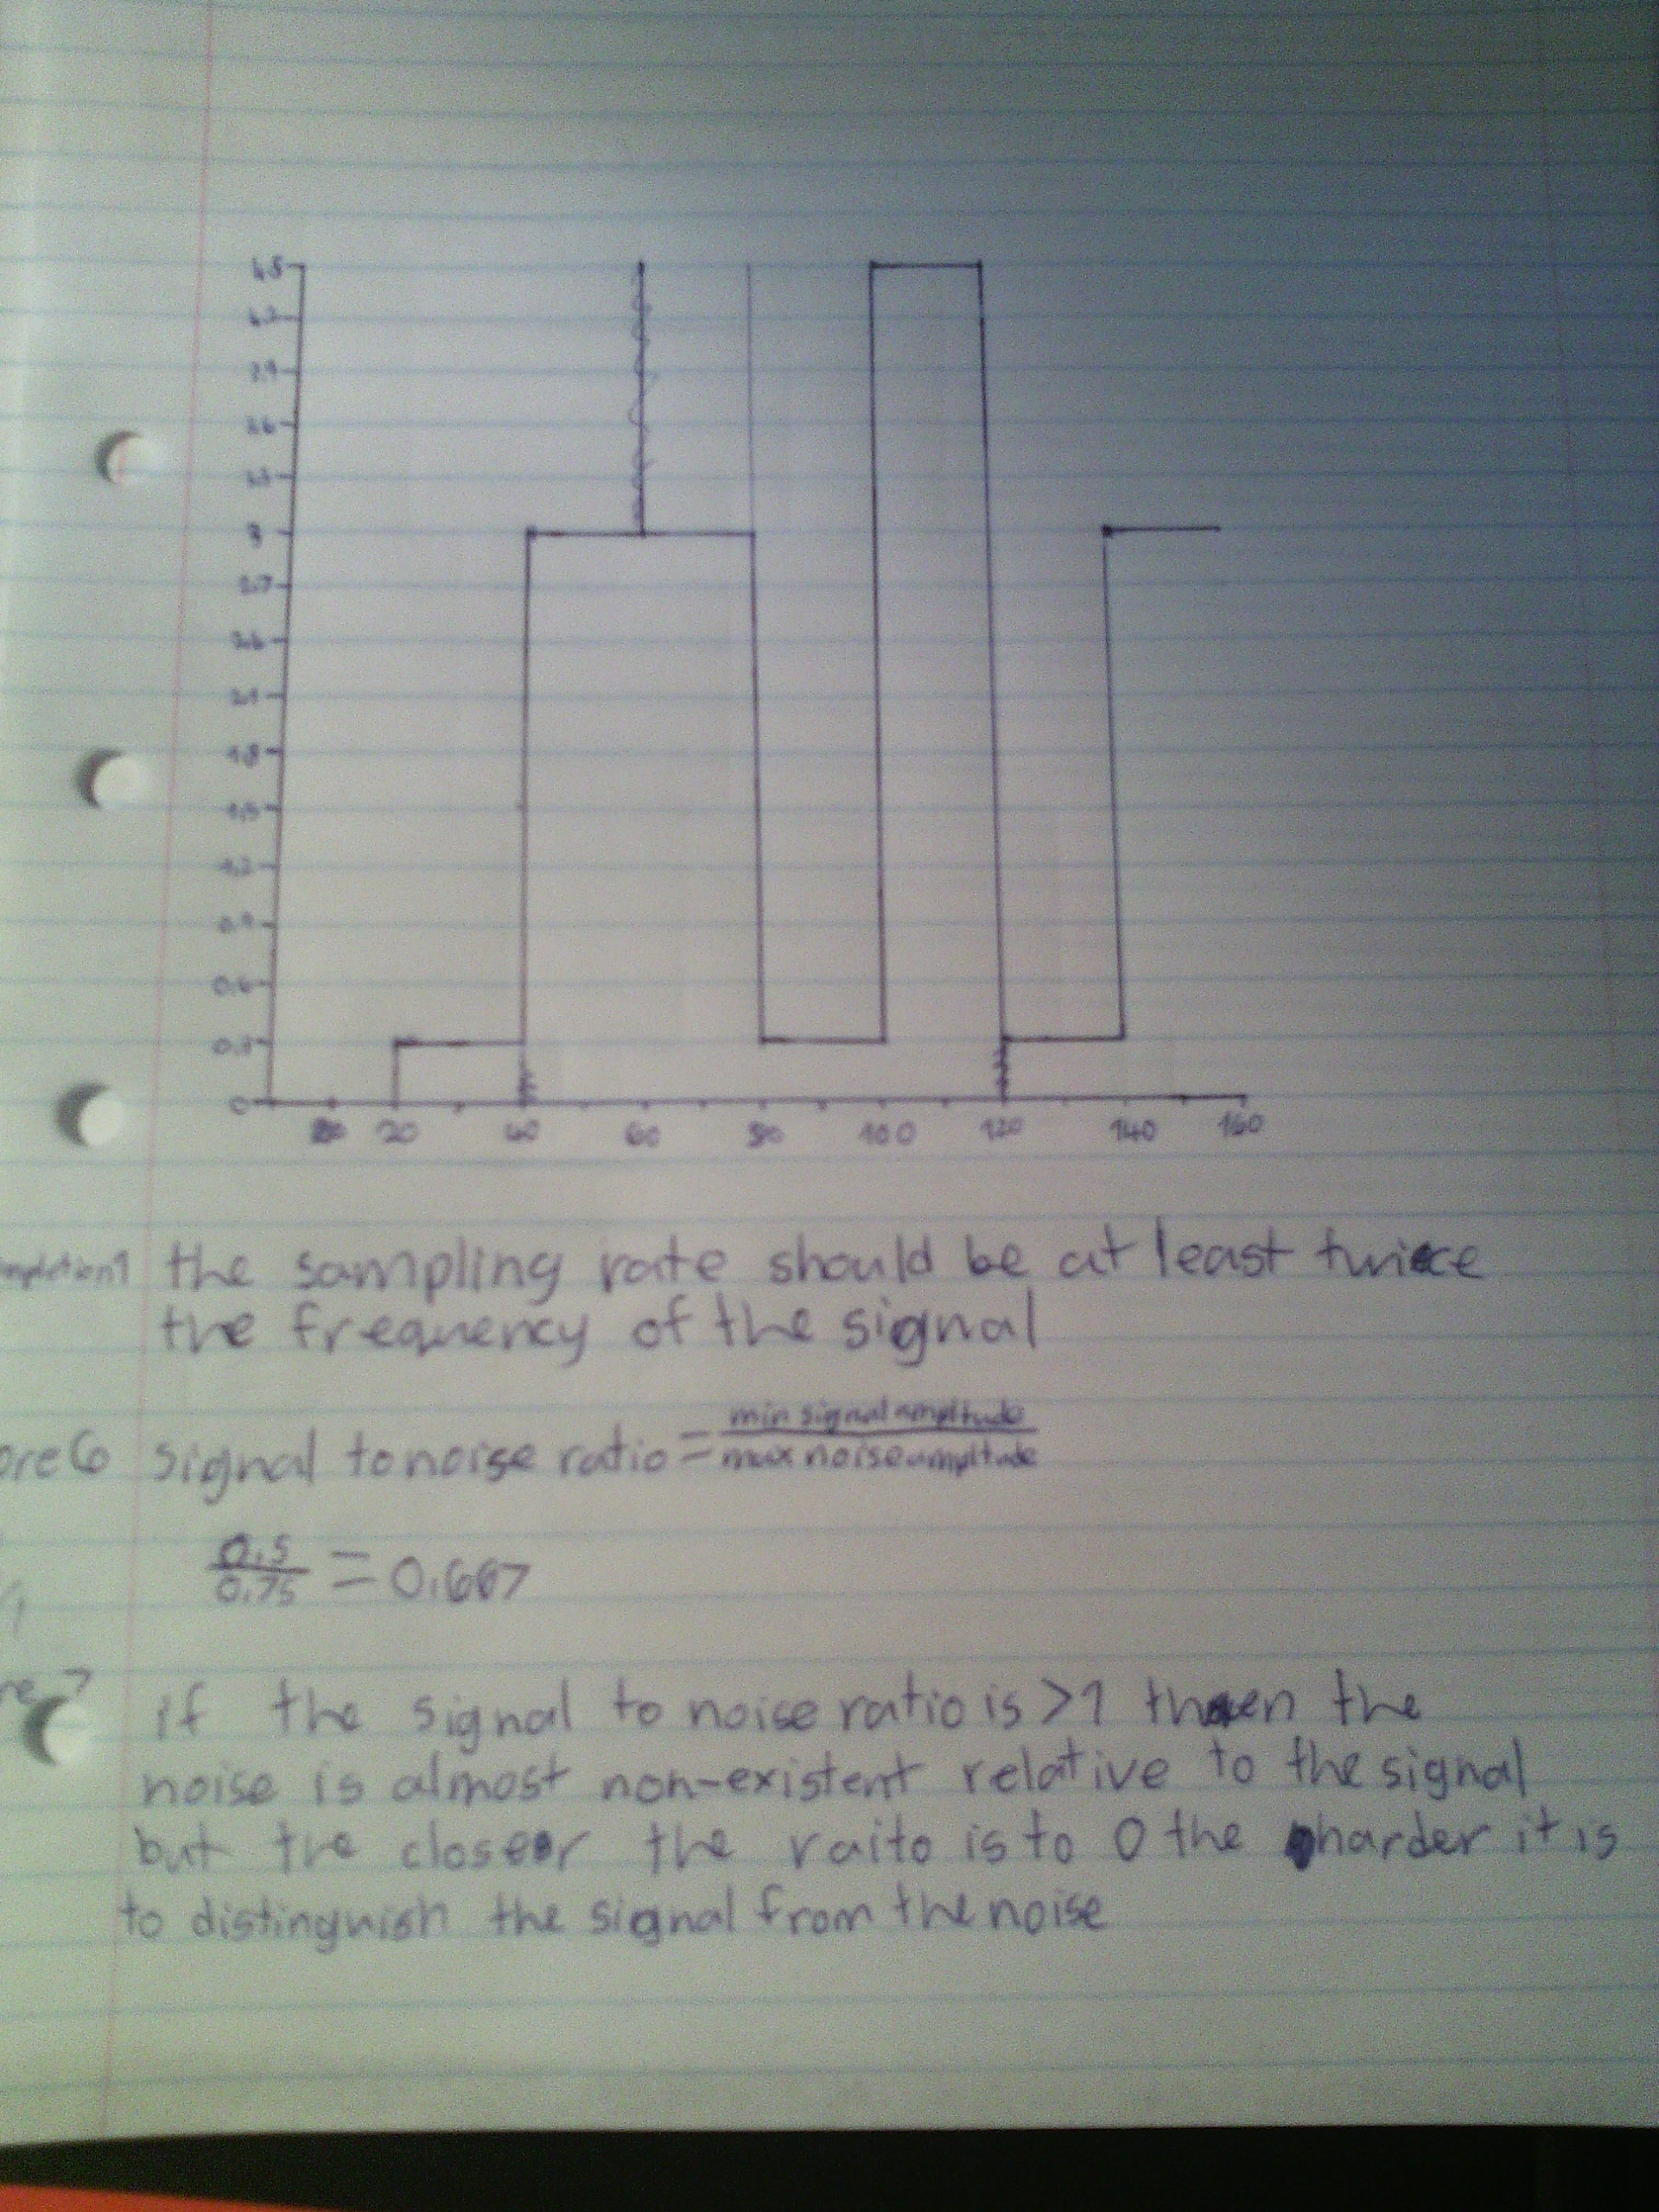 4.5
4.2
3.9
3.6
3.3
3
2.7
2.4
2.1
1.8
1.5
1.2
0.9
0.6
0.3
0
20 40 60 80 100 120 140 160
the sampling rate should be at least twice
the frequency of the signal
ore 6 signal to noise ratio = min signal amplitude
max noise amplitude
0.5
0.75 = 0.667
re 7 if the signal to noise ratio is >1 then the
noise is almost non-existent relative to the signal
but the closer the raito is to 0 the harder it is
to distinguish the signal from the noise